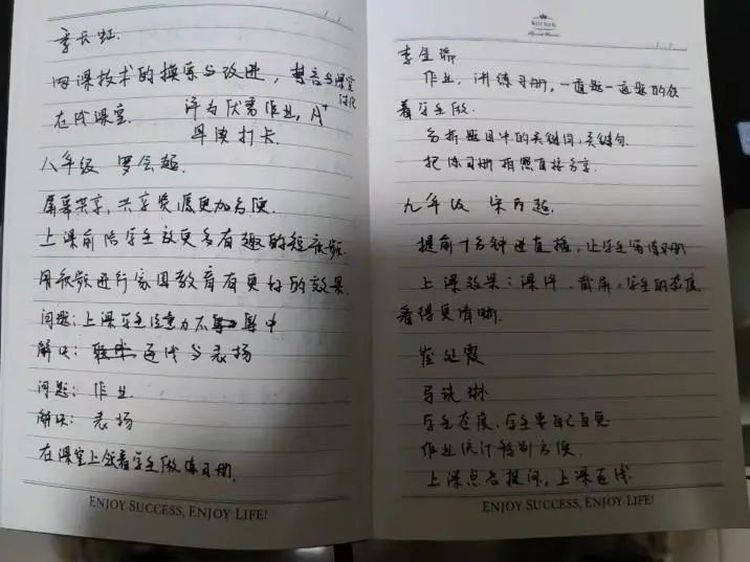 李长虹.
网课技术的摸索与改进,
在线课堂. 评为优秀作业, A+
早读打卡.
八年级 罗会超.
屏幕共享,共享资源更加方便.
上课前给学生放更多有趣的短视频.
用视频进行家国教育有更好的效果.
问题:上课学生注意力不集中
解决: 连线与表扬
问题: 作业
解决: 表扬
在课堂上领着学生做练习册.
ENJOY SUCCESS, ENJOY LIFE!
作业,讲练习册,一道题一道题的领
着学生做.
分析题目中的关键词,关键句.
把练习册拍照直接分享.
九年级 宋
提前十分钟进直播,让学生写练习册
上课效果:课件、截屏。学生的态度
看得更清晰.
学生态度,学生要自己自觉
作业统计特别方便.
上课点名提问,上课连线
ENJOY SUCCESS, ENJOY LIFE!